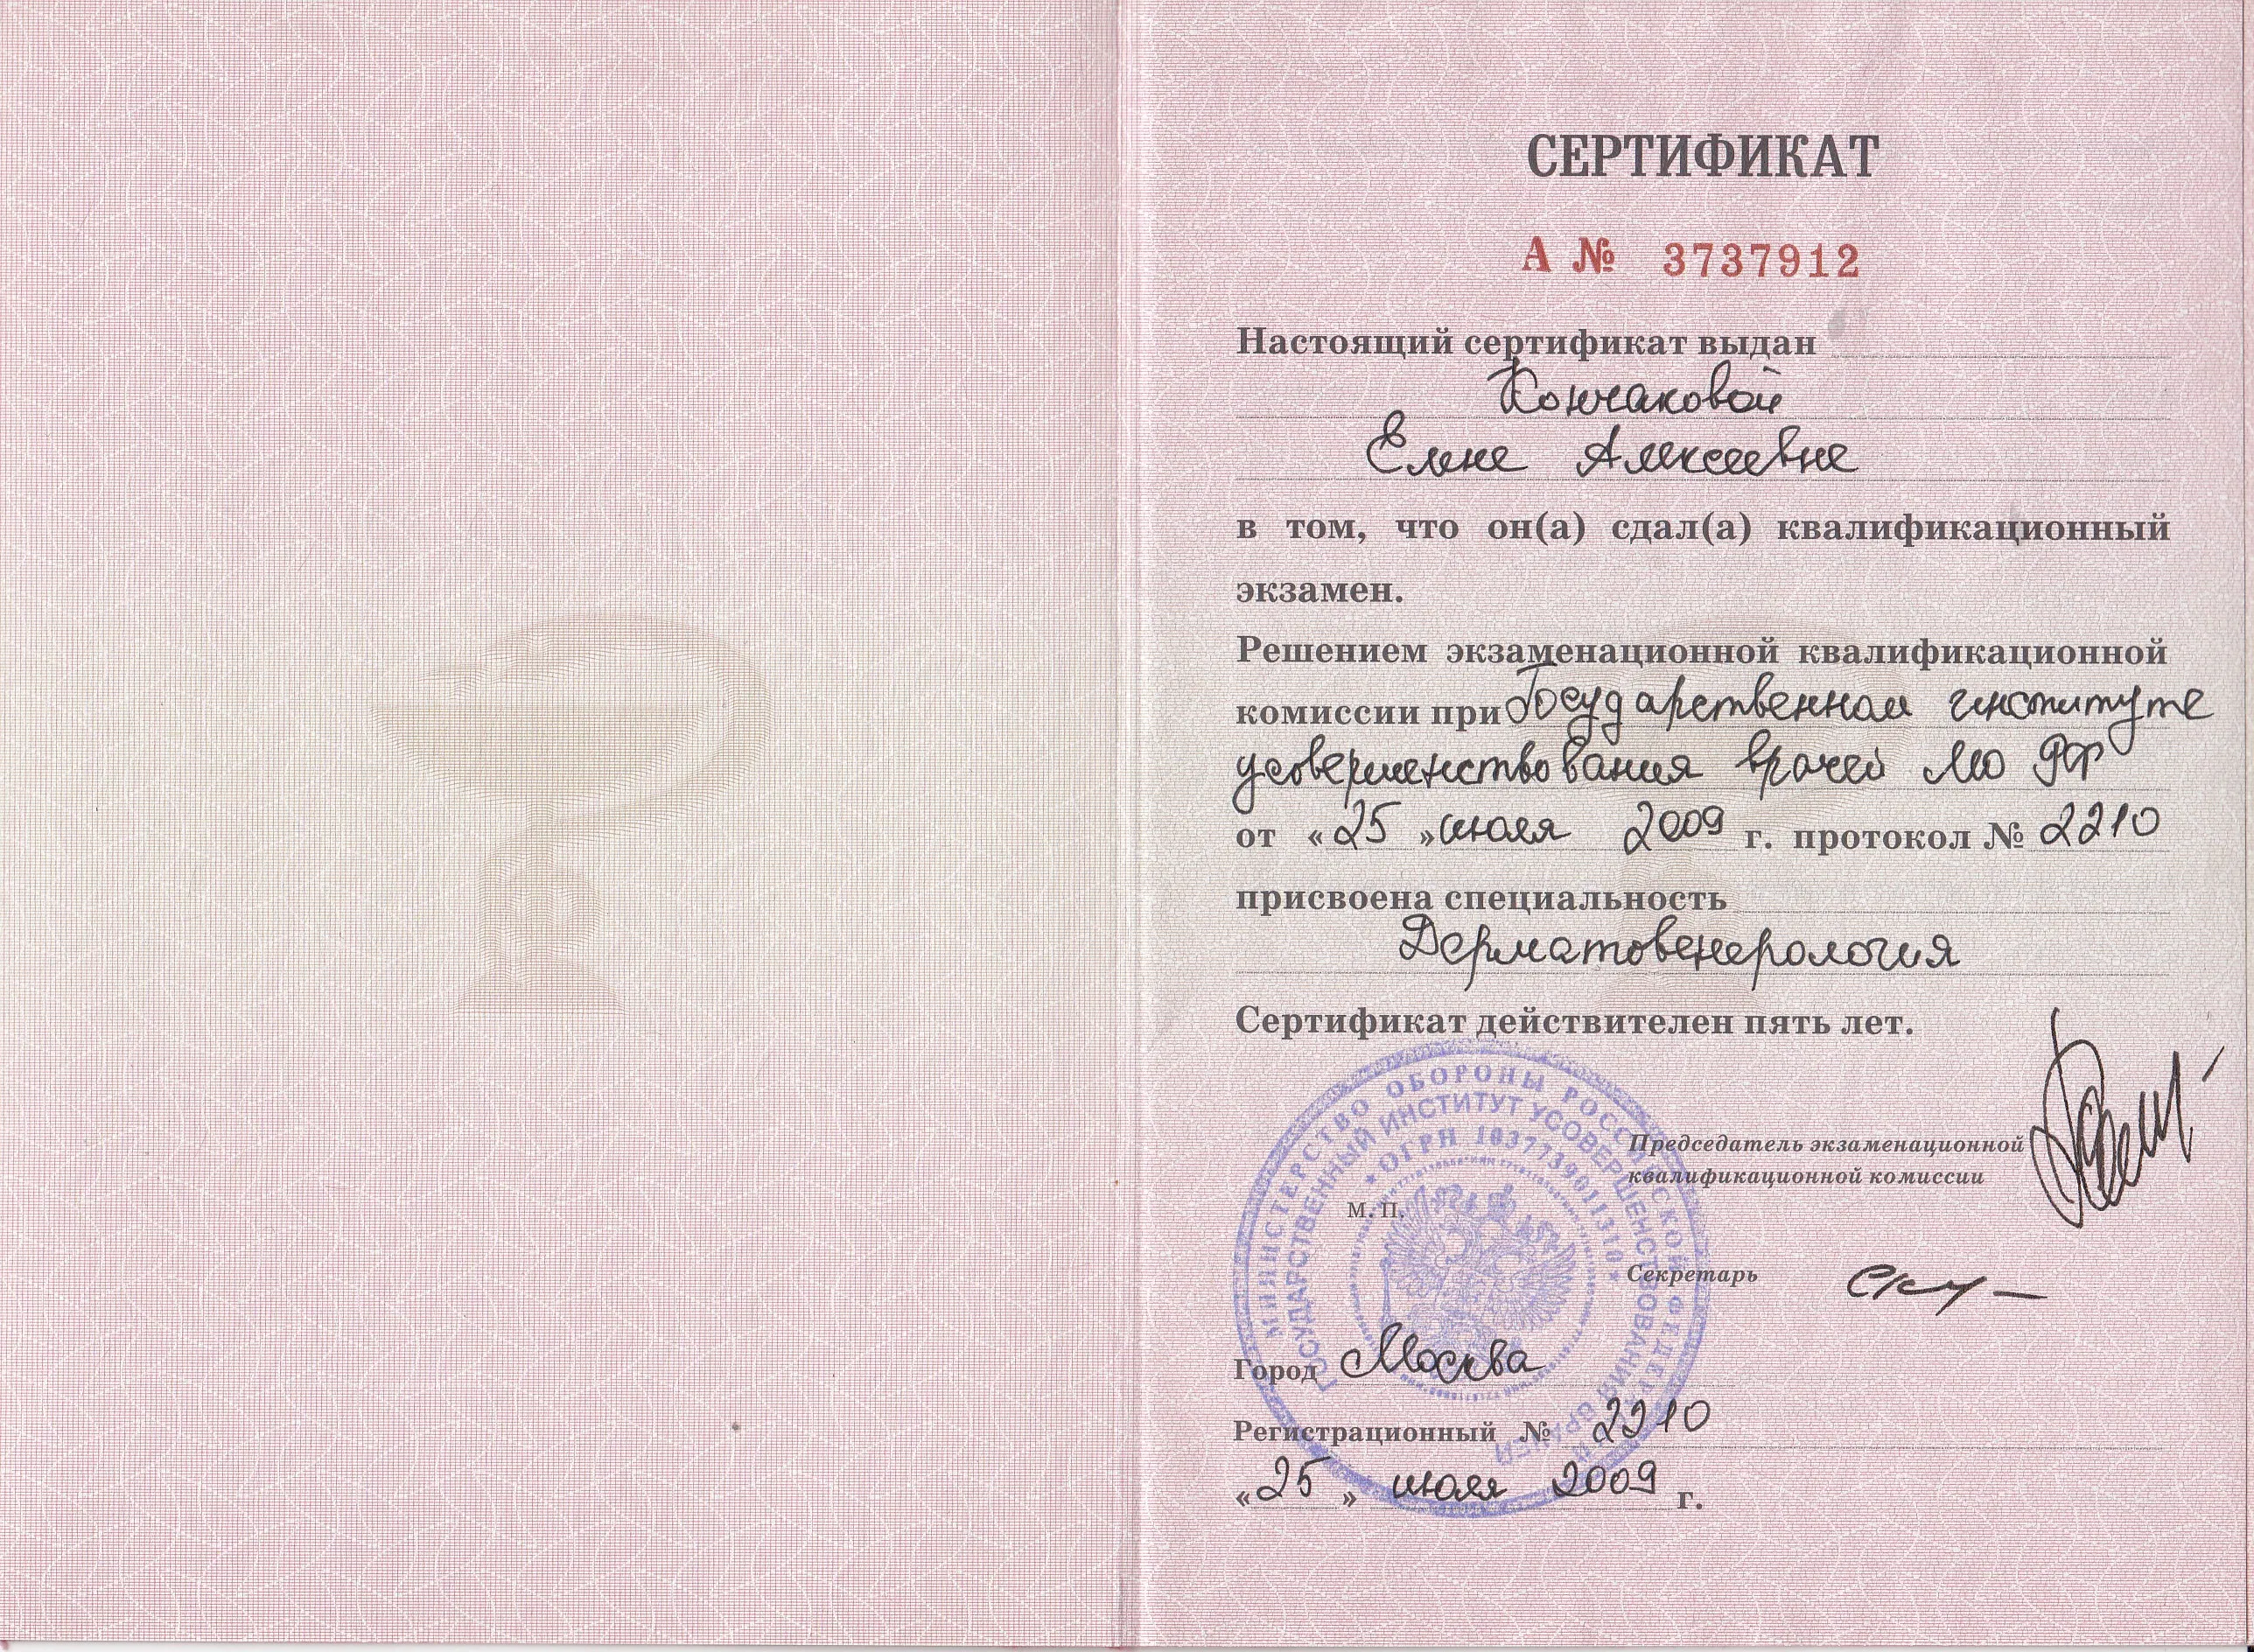 СЕРТИФИКАТ
А № 3737912
Настоящий сертификат выдан
Кончаковой
Елене Алексеевне
в том, что он(а) сдал(а) квалификационный
экзамен.
Решением экзаменационной квалификационной
комиссии при Государственном институте
усовершенствования врачей МО РФ
от «25» июля 2009 г. протокол № 2210
присвоена специальность
Дерматовенерология
Сертификат действителен пять лет.
МИНИСТЕРСТВО ОБОРОНЫ РОССИЙСКОЙ ФЕДЕРАЦИИ
ГОСУДАРСТВЕННЫЙ ИНСТИТУТ УСОВЕРШЕНСТВОВАНИЯ ВРАЧЕЙ
ОГРН 1037739011310
Председатель экзаменационной
квалификационной комиссии
М. П.
Секретарь
Город Москва
Регистрационный № 2210
«25» июля 2009 г.